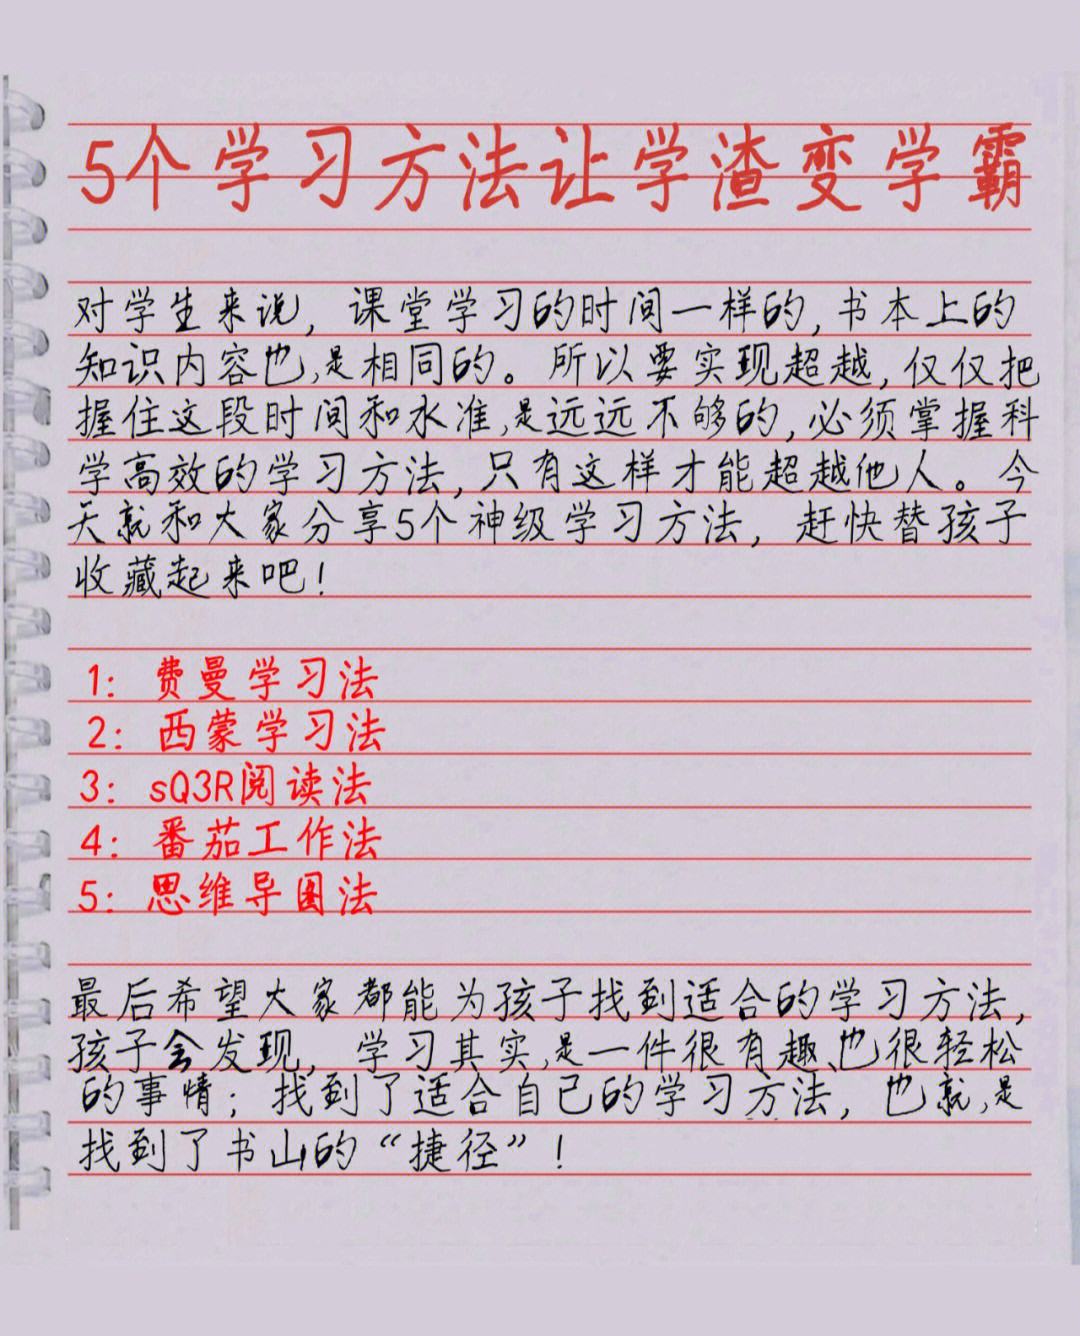 5个学习方法让学渣变学霸
对学生来说，课堂学习的时间一样的，书本上的
知识内容也是相同的。所以要实现超越，仅仅把
握住这段时间和水准，是远远不够的，必须掌握科
学高效的学习方法，只有这样才能超越他人。今
天就和大家分享5个神级学习方法，赶快替孩子
收藏起来吧！
1：费曼学习法
2：西蒙学习法
3：sQ3R阅读法
4：番茄工作法
5：思维导图法
最后希望大家都能为孩子找到适合的学习方法，
孩子会发现，学习其实是一件很有趣、也很轻松
的事情；找到了适合自己的学习方法，也就是
找到了书山的“捷径”！